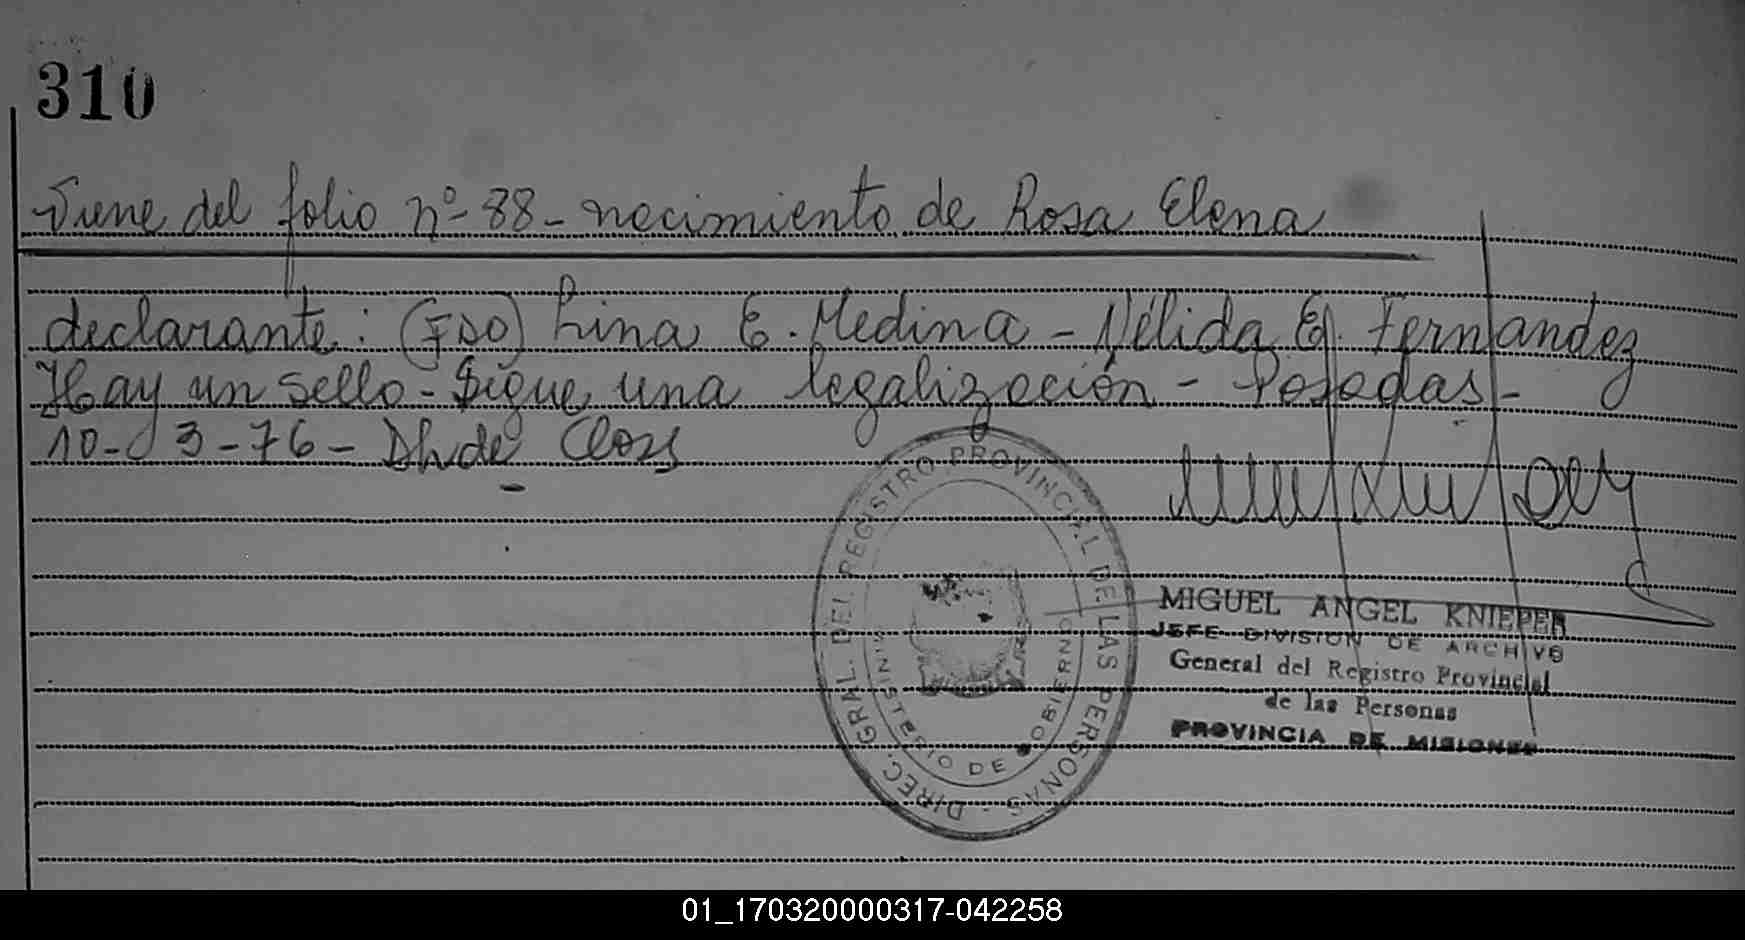 310
Viene del folio nº 88 - nacimiento de Rosa Elena
declarante: (FDO) Lina E. Medina - Nélida E. Fernandez
Hay un sello - Sigue una legalización - Posadas -
10 - 3 - 76 -
DIREC. GRAL. DEL REGISTRO PROVINCIAL DE LAS PERSONAS -
MINISTERIO DE GOBIERNO
MIGUEL ANGEL KNIEPER
JEFE DIVISION DE ARCHIVO
General del Registro Provincial
de las Personas
PROVINCIA DE MISIONES
01_170320000317-042258